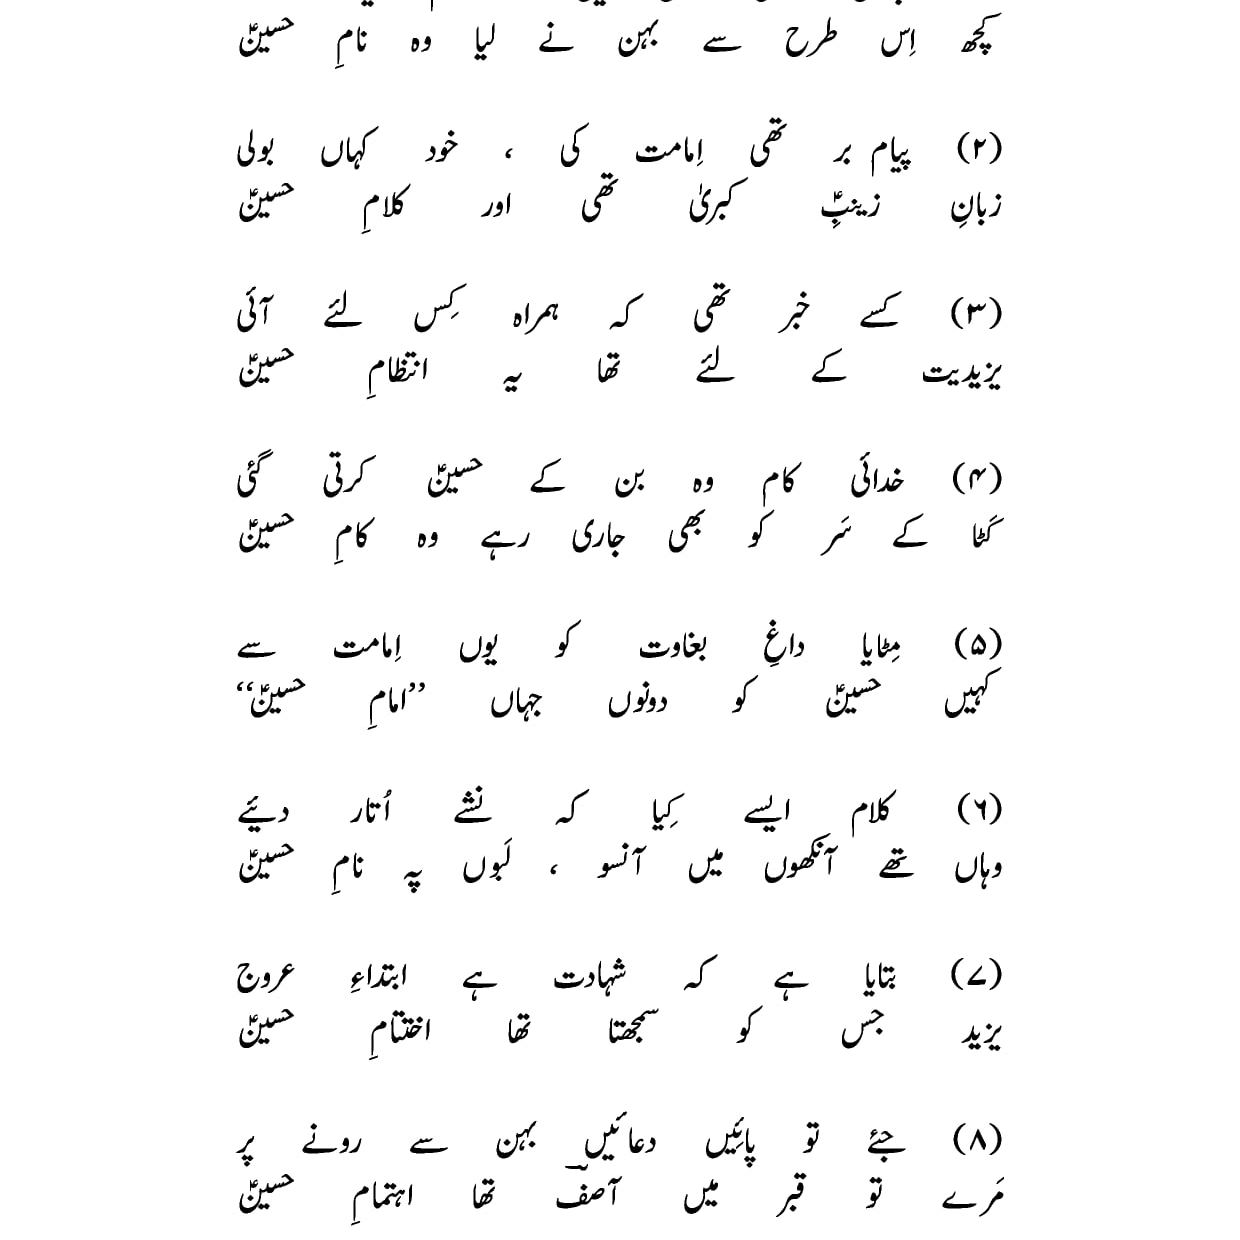 کچھ اِس طرح سے بہن نے لیا وہ نامِ حسینؑ
(۲) پیام بر تھی اِمامت کی ، خود کہاں بولی
زبانِ زینبِؑ کبریٰ تھی اور کلامِ حسینؑ
(۳) کسے خبر تھی کہ ہمراہ کِس لئے آئی
یزیدیت کے لئے تھا یہ انتظامِ حسینؑ
(۴) خدائی کام وہ بن کے حسینؑ کرتی گئی
کَٹا کے سَر کو بھی جاری رہے وہ کامِ حسینؑ
(۵) مِٹایا داغِ بغاوت کو یوں اِمامت سے
کہیں حسینؑ کو دونوں جہاں ’’امامِ حسینؑ‘‘
(۶) کلام ایسے کِیا کہ نشے اُتار دیئے
وہاں تھے آنکھوں میں آنسو ، لَبوں پہ نامِ حسینؑ
(۷) بتایا ہے کہ شہادت ہے ابتداءِ عروج
یزید جس کو سمجھتا تھا اختتامِ حسینؑ
(۸) جئے تو پائیں دعائیں بہن سے رونے پر
مَرے تو قبر میں آصفؔ تھا اہتمامِ حسینؑ